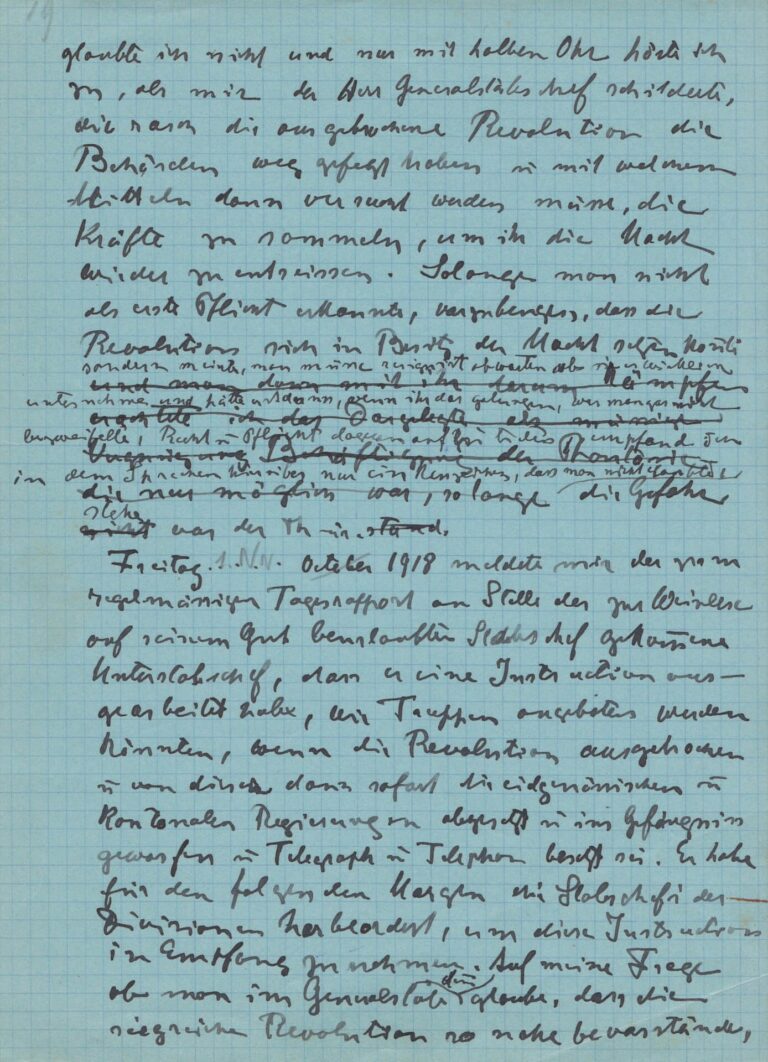 19
glaubte ich nicht und nur mit halbem Ohr hörte ich
zu, als mir der Herr Generalstabschef schilderte,
wie rasch die ausgebrochene Revolution die
Behörden weg gefegt haben u mit welchen
Mitteln dann versucht werden müsse, die
Kräfte zu sammeln, um ihr die Macht
wieder zu entreissen. Solange man nicht
als erste Pflicht erkannte, vorzubeugen, dass die
Revolution sich in Besitz der Macht setzen könnte
sondern meinte, man müsse resigniert abwarten ob sie
und man dann mit ihr darum kämpfen
unternehmen und hätte erst dann, wenn ihr das gelungen, was man gar nicht
erachtete ich das Dargelegte als müssige
bezweifelte, Recht u Pflicht dagegen empfand ich
der Phantasie
in dem Sprechen hierüber nur ein Kennzeichen, dass man nicht glaubte
die nur möglich war, solange die Gefahr
stehe
nicht vor der Thür stand.
Freitag 1. Nov. October 1918 meldete mir der zum
regelmässigen Tagesrapport an Stelle des zur Weinlese
auf seinem Gut beurlaubten Stabschef gekommene
Unterstabschef, dass er eine Instruction aus-
gearbeitet habe, wie Truppen aufgeboten werden
könnten, wenn die Revolution ausgebrochen
u von dieser dann sofort die eidgenössischen u
kantonalen Regierungen abgesetzt u ins Gefängniss
geworfen u Telegraph u Telephon besetzt sei. Er habe
für den folgenden Morgen die Stabschefs der
Divisionen herbeordert, um diese Instructions
in Empfang zu nehmen. Auf meine Frage
ob man im Generalstab denn glaube, dass die
siegreiche Revolution so nahe bevorstände,